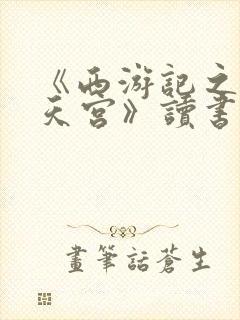 《西游記之
天宮》讀書
畫筆話蒼生